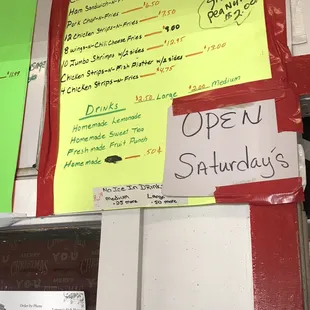 Ham Sandwich-n-Fries
Pork Chop-n-Fries 6.50
12 Chicken Strips-n-Fries 7.50
8 wing-n-Chili Cheese Fries 9.00
10 Jumbo Shrimps w/2 sides 12.95
Chicken Strips-n-Fish Platter w/2 sides 13.00
4 Chicken Strips-n-Fries 4.75
PEANUT
$2.00
Drinks
$2.50 Large
$2.00 Medium
Homemade Lemonade
Homemade Sweet Tea
Fresh made Fruit Punch
Homemade 50¢
OPEN
Saturday's
No Ice In Drink
Medium Large
.25 more .50 more